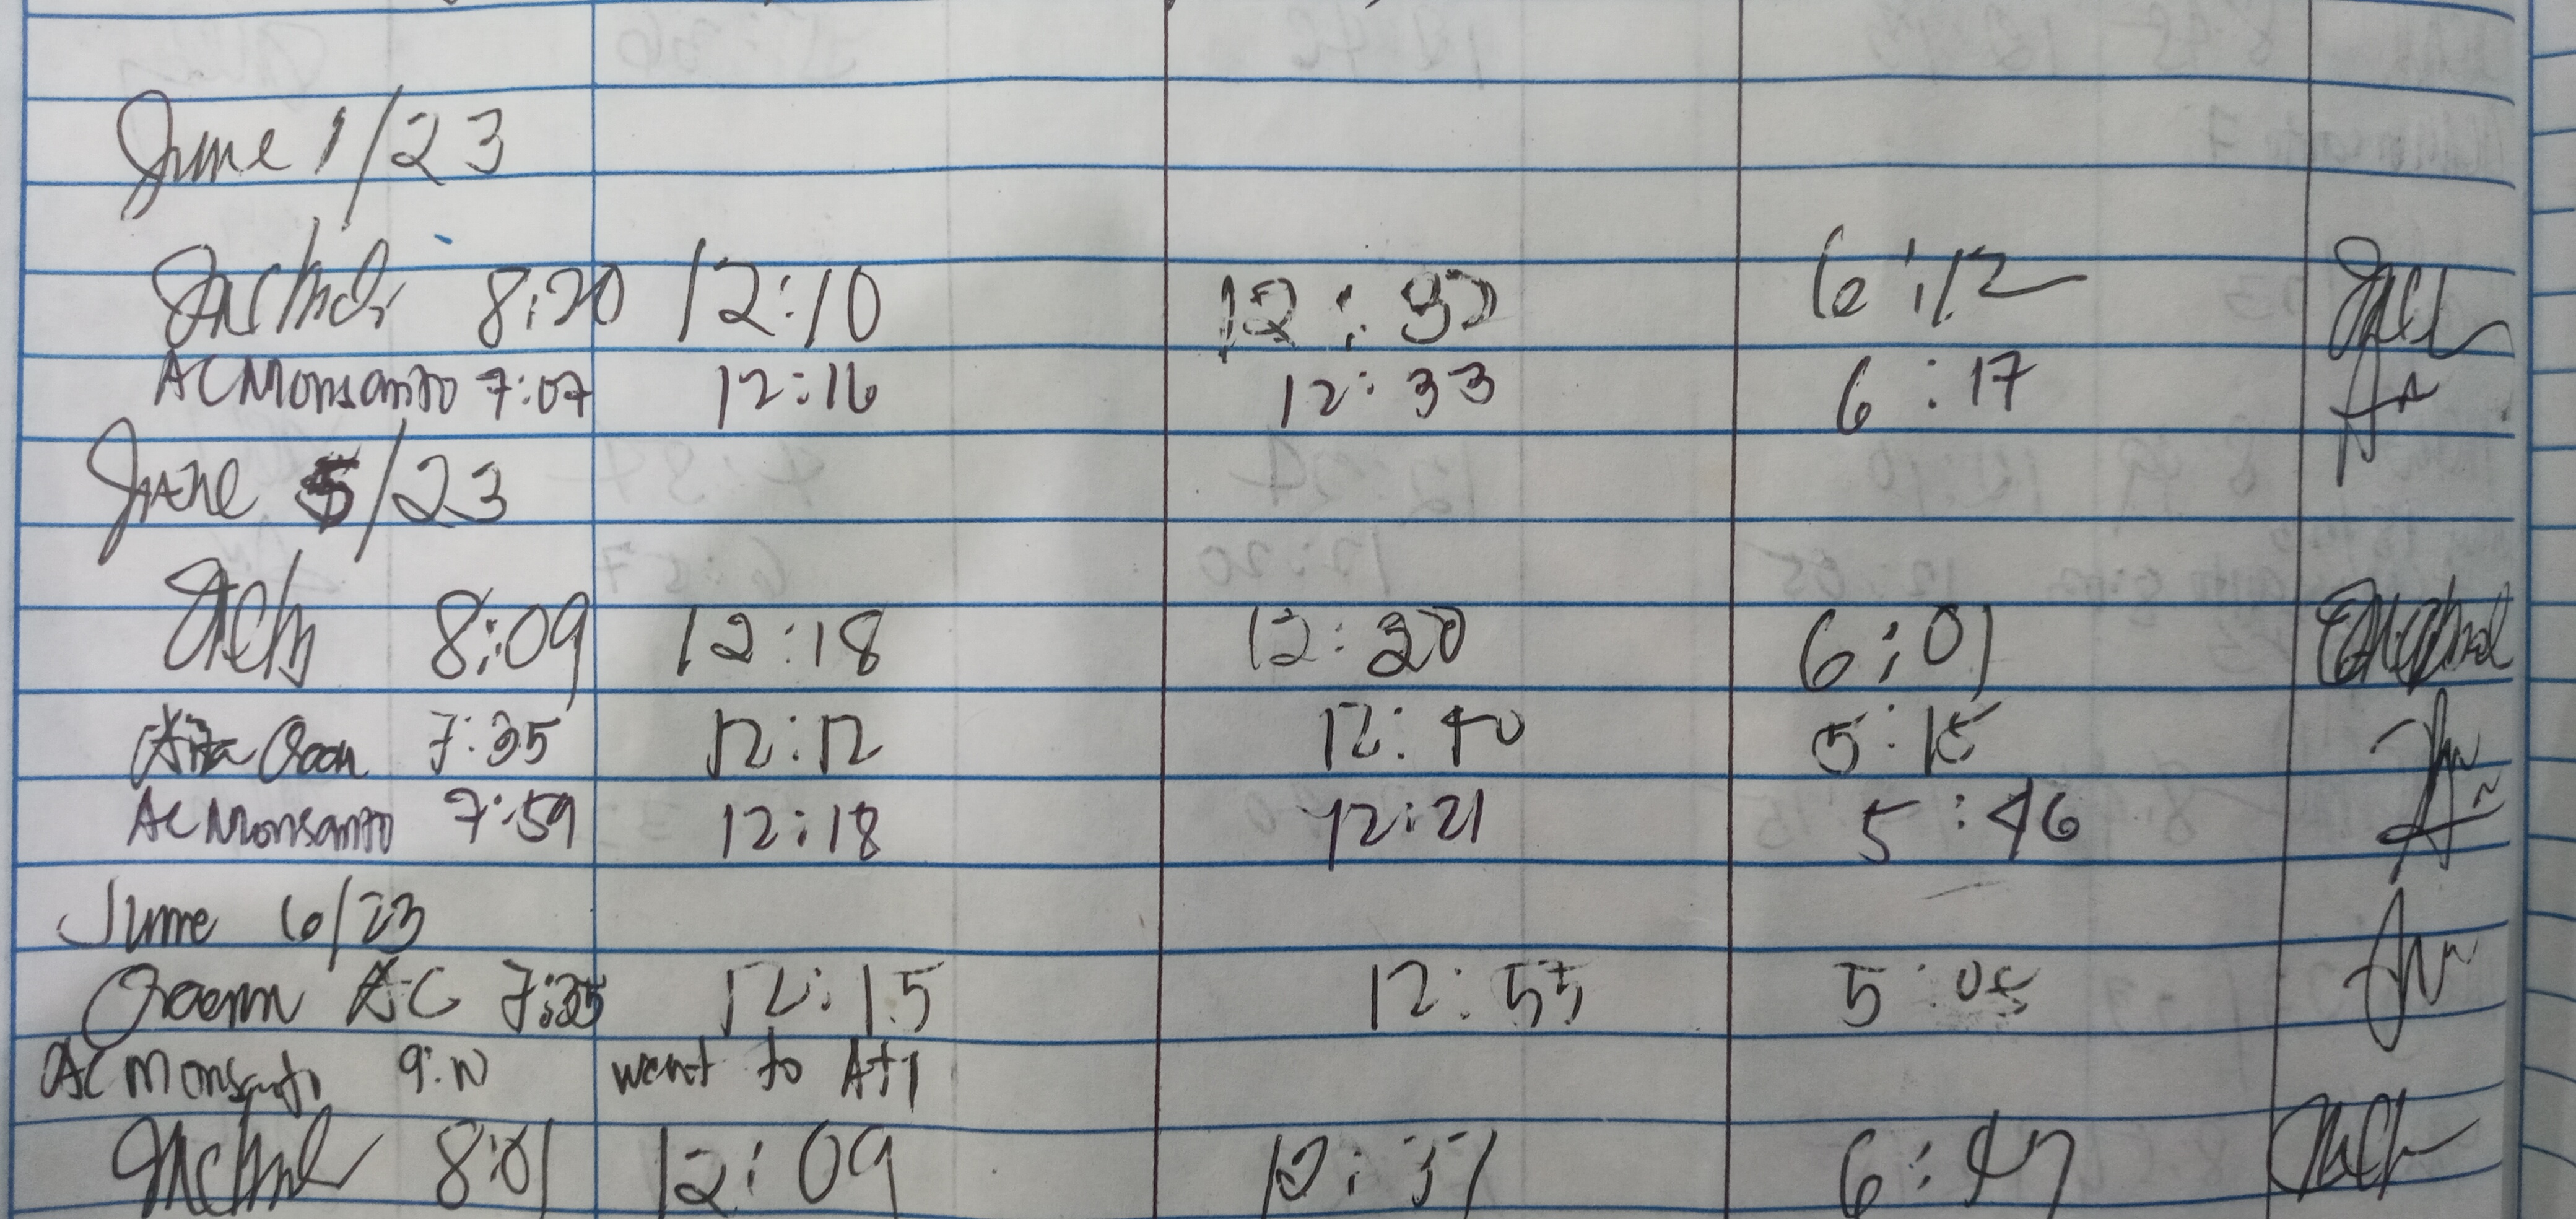 June 1/23
8:20 12:10 12:32 6:12
AC Monsanto 7:07 12:16 12:33 6:17
June 5/23
8:09 12:18 12:20 6:01
7:35 12:12 12:40 5:15
AC Monsanto 7:59 12:18 12:21 5:46
June 6/23
AC 7:35 12:15 12:55 5:05
AC Monsanto went to
8:01 12:09 12:37 6:47